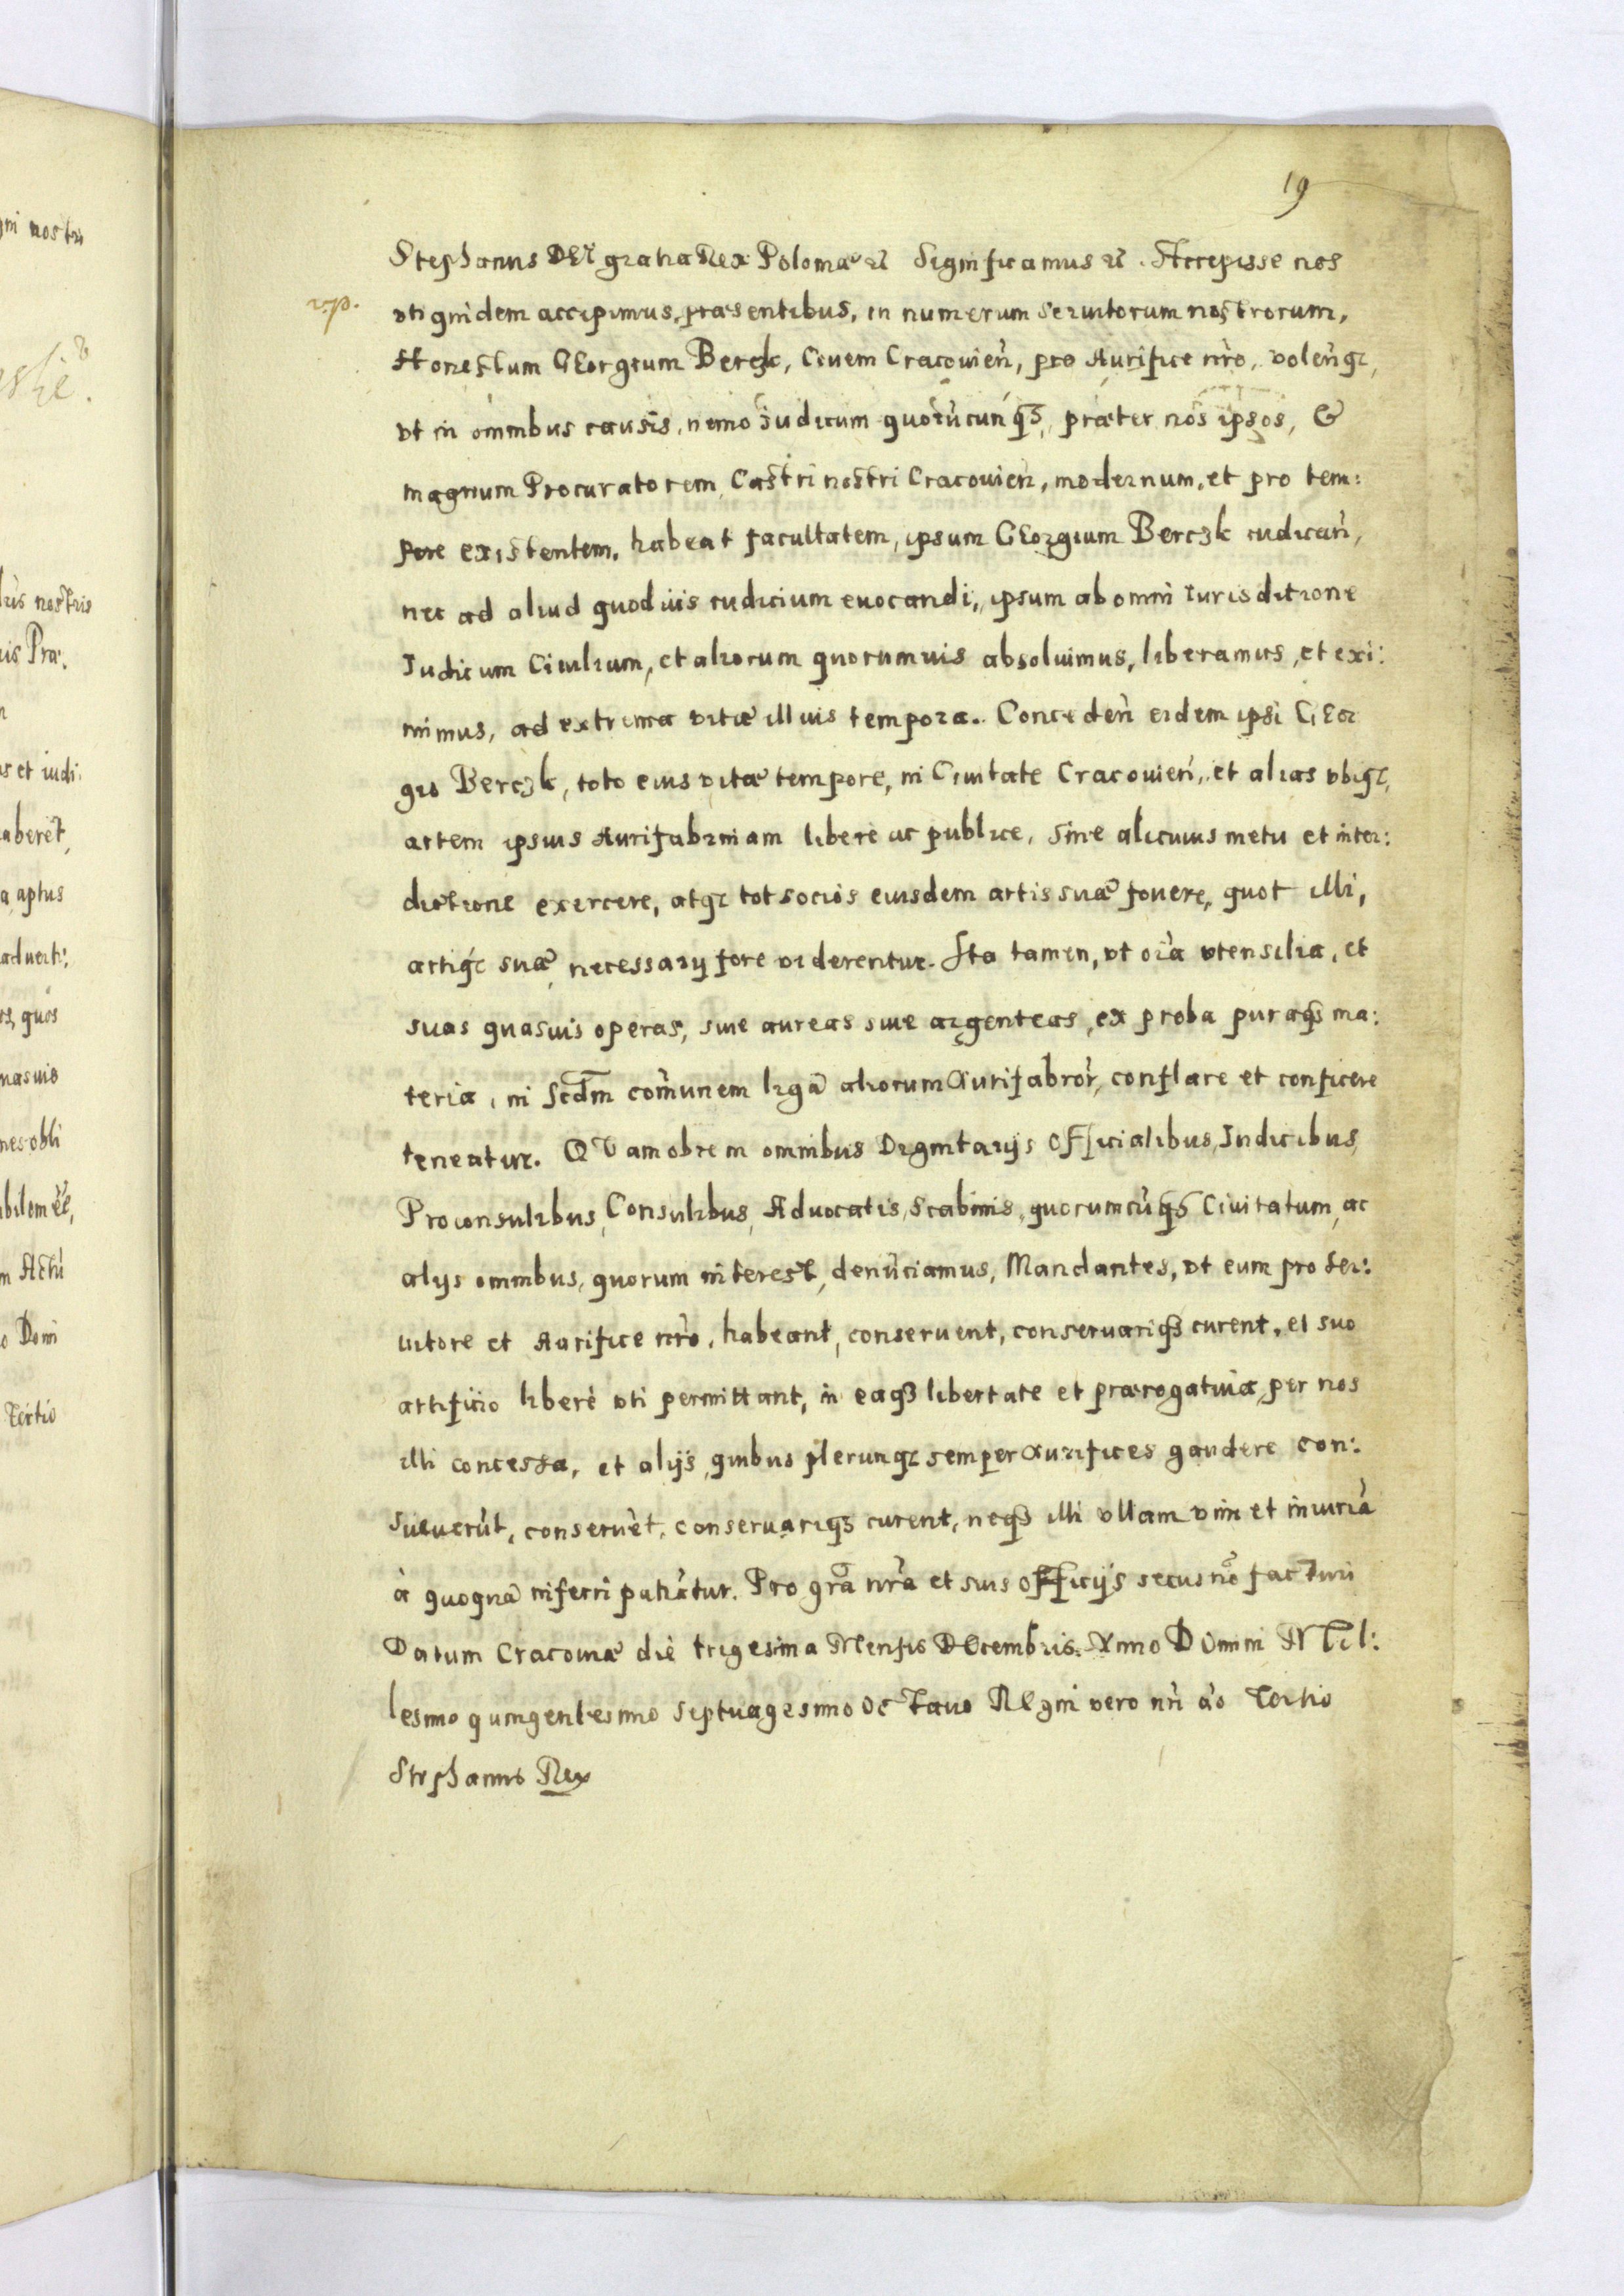 19
Stephanus DEI gratia Rex Poloniæ etc Significamus etc. Accepisse nos
vti quidem accipimus, præsentibus, in numerum seruitorum nostrorum,
Honestum GEorgium Berczk, Ciuem Cracouien̄, pro Aurifice nr̄o, volen̄q;
vt in omnibus causis, nemo Judicum quorūcunq3, præter nos ipsos, &
magnum Procuratorem Castri nostri Cracouien̄, modernum, et pro tem:
pore existentem, habeat facultatem, ipsum GEorgium Berczk iudican̄,
nec ad aliud quoduis iudicium euocandi, ipsum ab omni Iurisditione
Judicum Ciuilium, et aliorum quorumuis absoluimus, liberamus, et exi:
mimus, ad extrema vitæ illius tempora. Conceden̄ eidem ipsi GEor
gio Berczk, toto eius vitæ tempore, in Ciuitate Cracouien̄, et alias vbiq;,
artem ipsius Aurifabriniam libere ac publice, sine alicuius metu et inter:
dictione exercere, atq; tot socios eiusdem artis suæ fouere, quot illi,
artiq; suæ necessarij fore viderentur. Ita tamen, vt oīa vtensilia, et
suas quasuis operas, siue aureas siue argenteas, ex proba puraq3 ma:
teria, in scdm̄ com̄unem ligā aliorum Aurifabror̄, conflare et conficere
teneatur. QVamobrem omnibus Dignitarijs Officialibus, Judicibus,
Proconsulibus, Consulibus, Aduocatis, Scabinis, quorumcūq3 Ciuitatum, ac
alijs omnibus, quorum interest, denūciamus, Mandantes, vt eum pro ser:
uitore et Aurifice nr̄o, habeant, conseruent, conseruariq3 curent, et suo
artificio liberè vti permittant, in eaq3 libertate et prærogatiua, per nos
illi concessa, et alijs, quibus plerunq; semper Aurifices gaudere con:
sueuerūt, conseruēt, conseruariq3 curent, neq3 illi vllam vim et iniuriā
à quoquā inferri patiātur. Pro grā nr̄a et suis officijs secus nō facturi
Datum Cracouiæ die trigesima Mensis DEcembris. Anno DOmini MIl:
lesimo quingentesimo septuagesimo octauo REgni vero nr̄i āo Tertio
Stephanus Rex